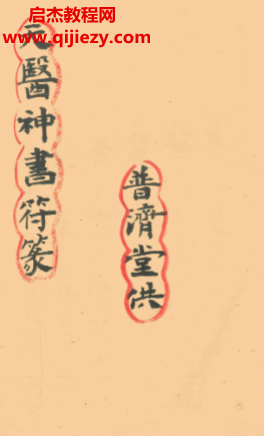 启杰教程网
www.qijiezy.com
元醫神書符篆
普濟堂供